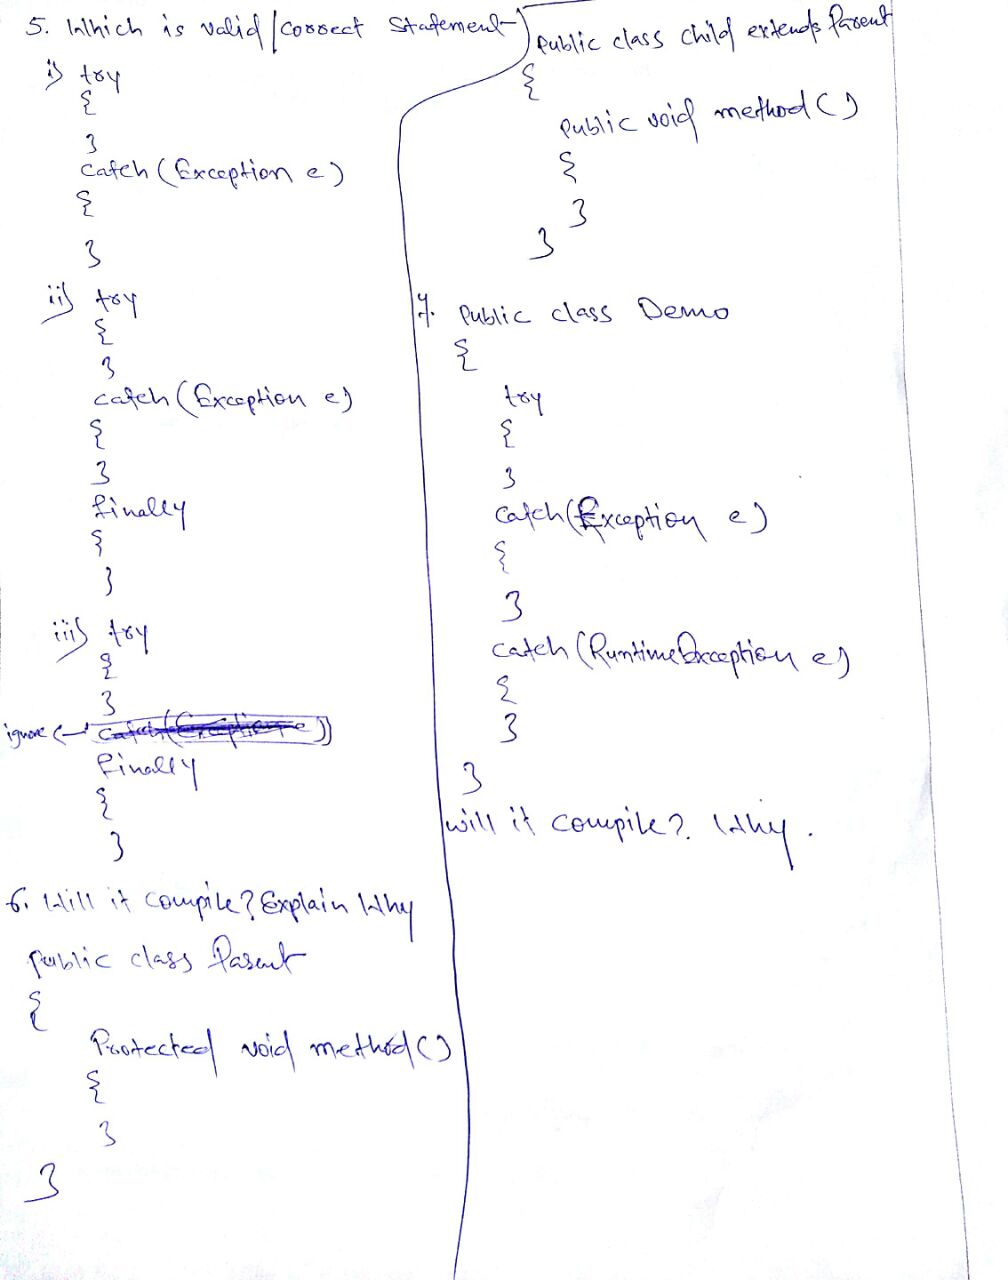 5. Which is valid/correct statement
i) try
{
}
catch (Exception e)
{
}
ii) try
{
}
catch (Exception e)
{
}
finally
{
}
iii) try
{
}
ignore ← catch(Exception e)
finally
{
}
6. Will it compile? Explain Why
public class Parent
{
Protected void method()
{
}
}
public class child extends Parent
{
public void method()
{
}
}
7. Public class Demo
{
try
{
}
catch(Exception e)
{
}
catch (RuntimeException e)
{
}
}
will it compile? Why.